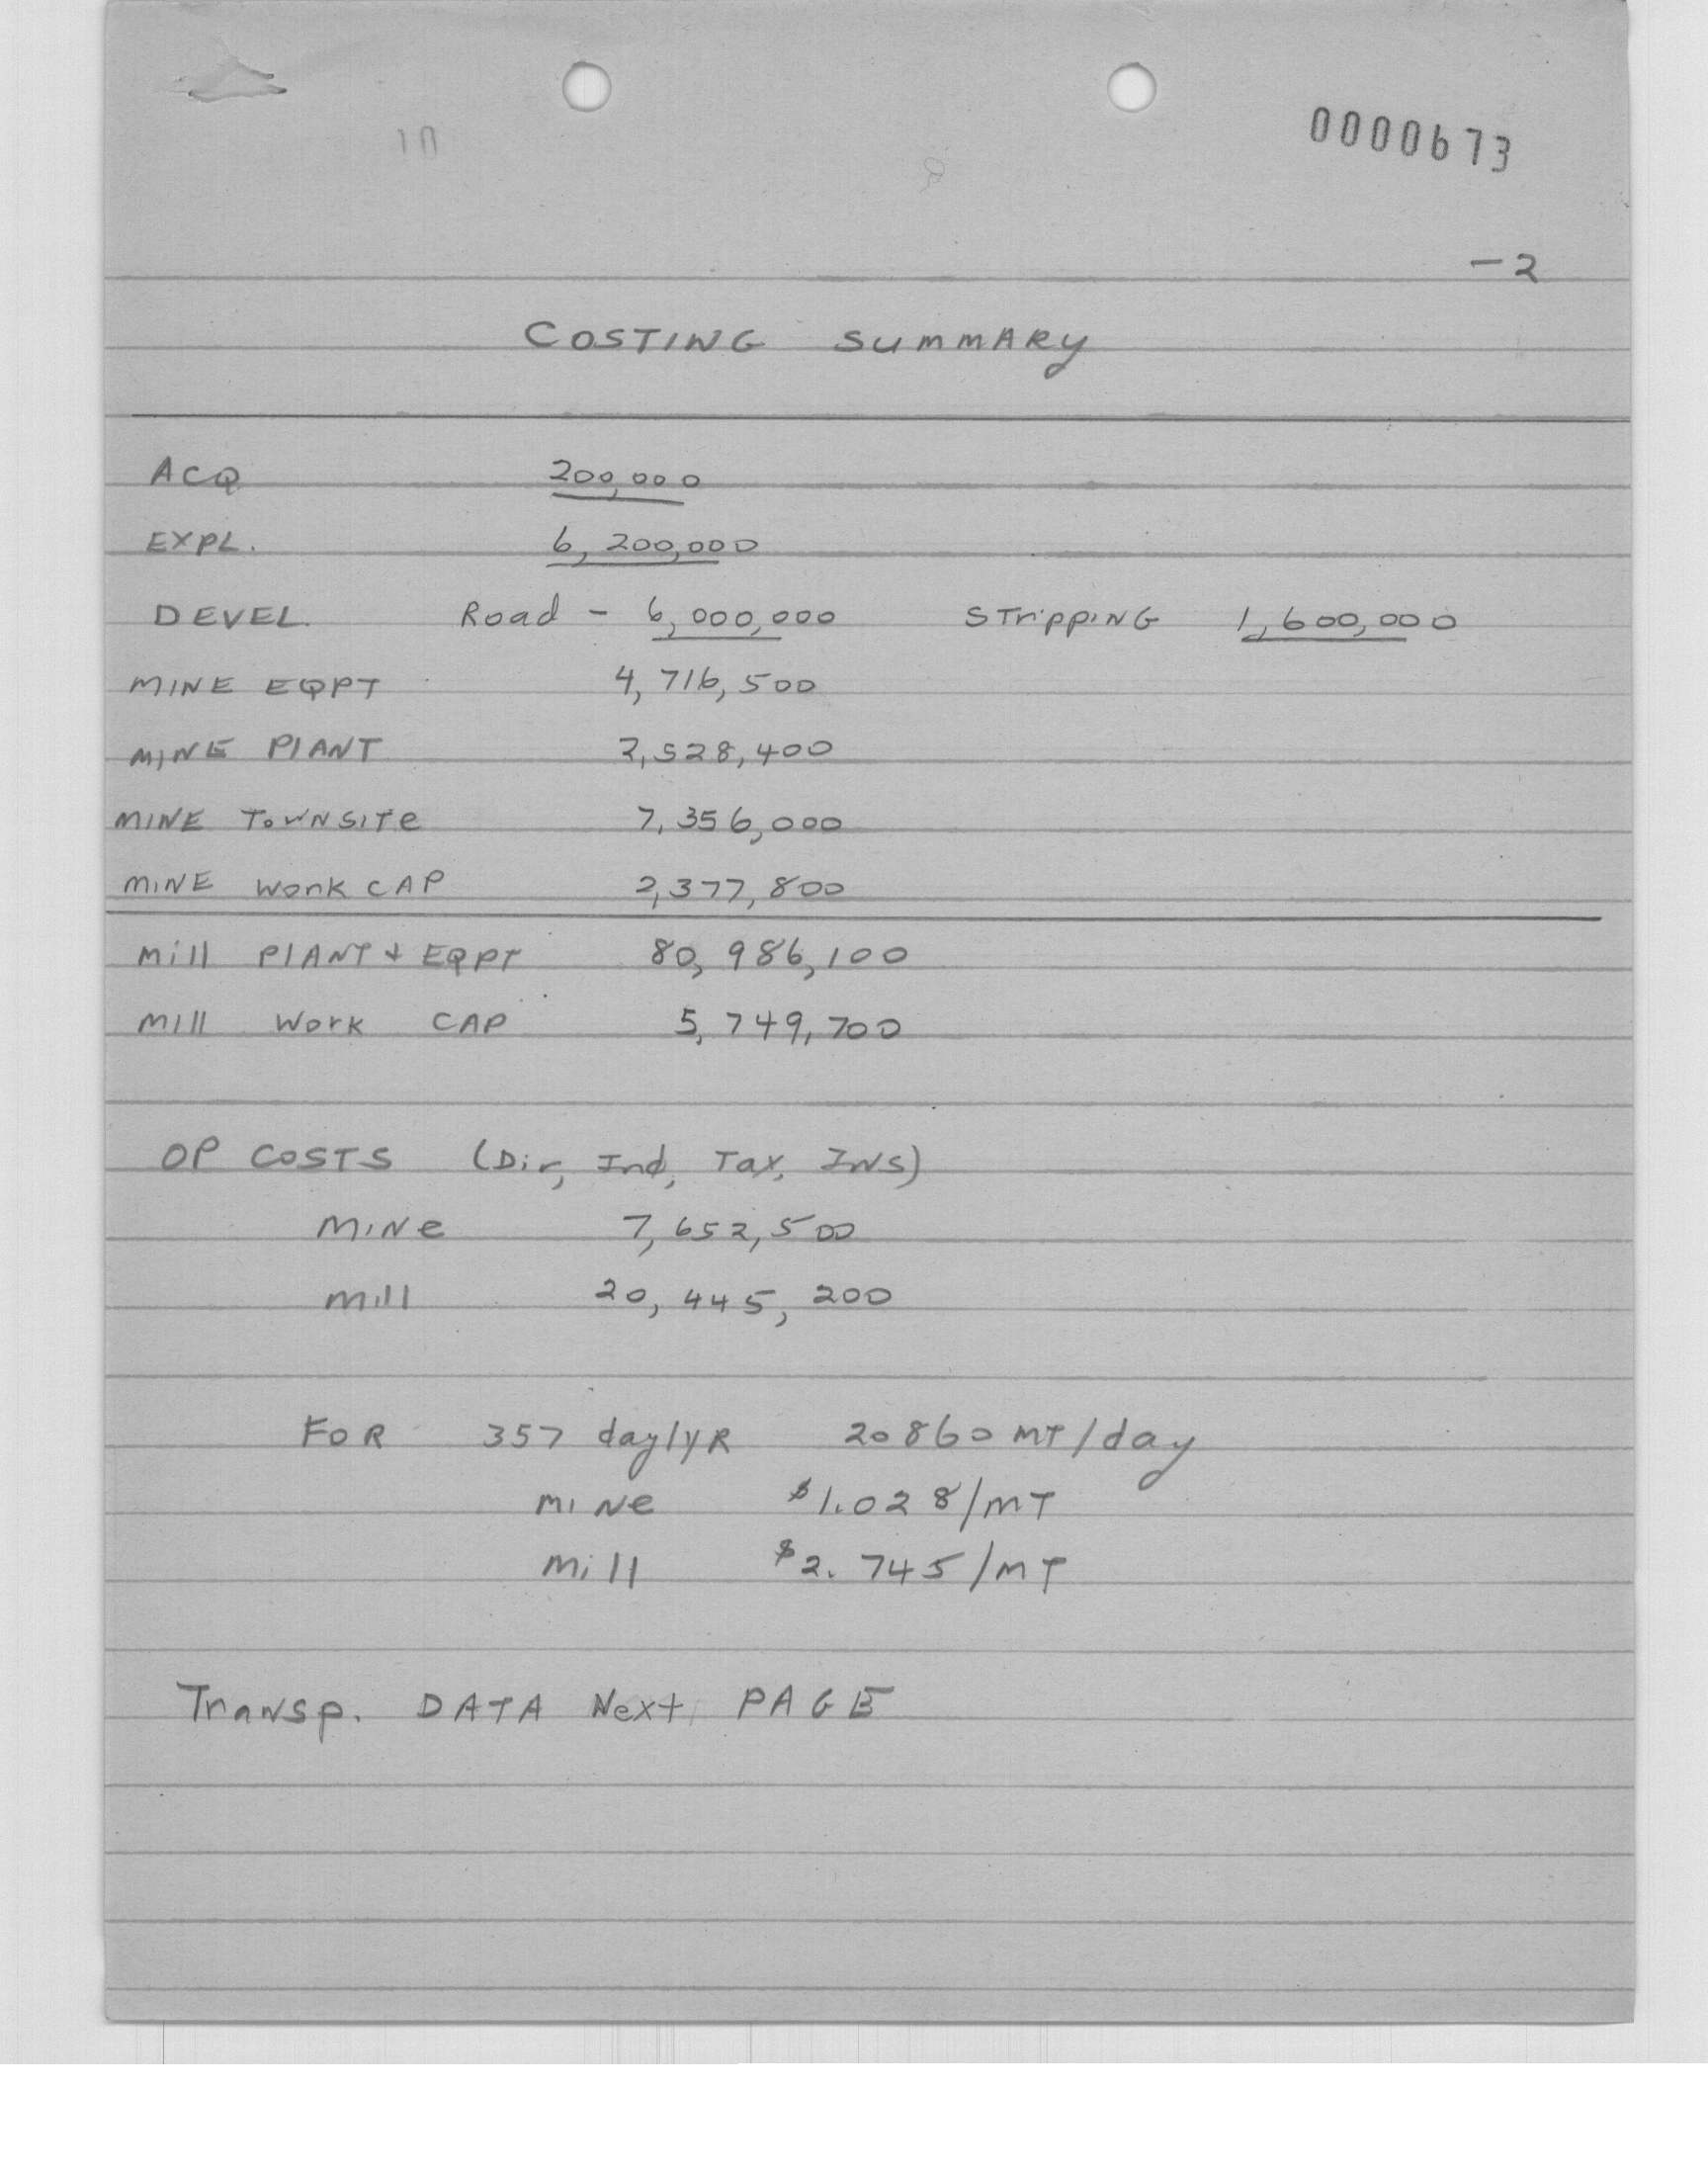 0000673
-2
COSTING SUMMARY
ACQ 200,000
EXPL. 6,200,000
DEVEL. Road - 6,000,000 STripping 1,600,000
MINE EQPT 4,716,500
MINE PLANT 2,528,400
MINE TOWNSITe 7,356,000
MINE Work CAP 2,377,800
Mill PLANT & EQPT 80,986,100
Mill Work CAP 5,749,700
OP COSTS (Dir, Ind, Tax, INS)
MINe 7,652,500
Mill 20,445,200
FOR 357 day/yR 20860 MT/day
MINe $1.028/MT
Mill $2.745/MT
Transp. DATA Next PAGE